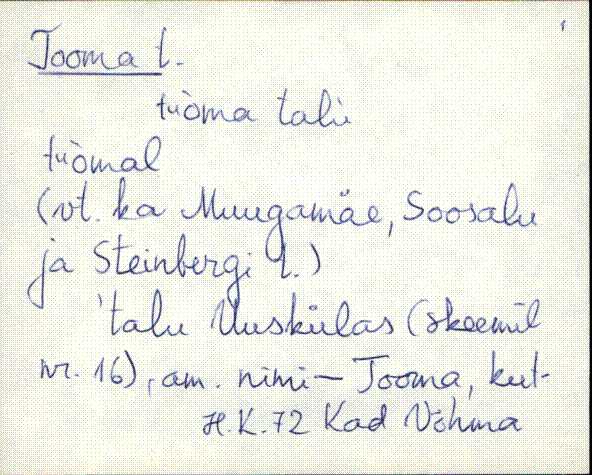 Tooma t.
tùoma talu
tùomal
(vt. ka Muugamäe, Soosalu
ja Steinbergi t.)
'talu Uuskülas (skeemil
nr. 16), am. nimi – Tooma, kut-
H.K.72 Kad Võhma